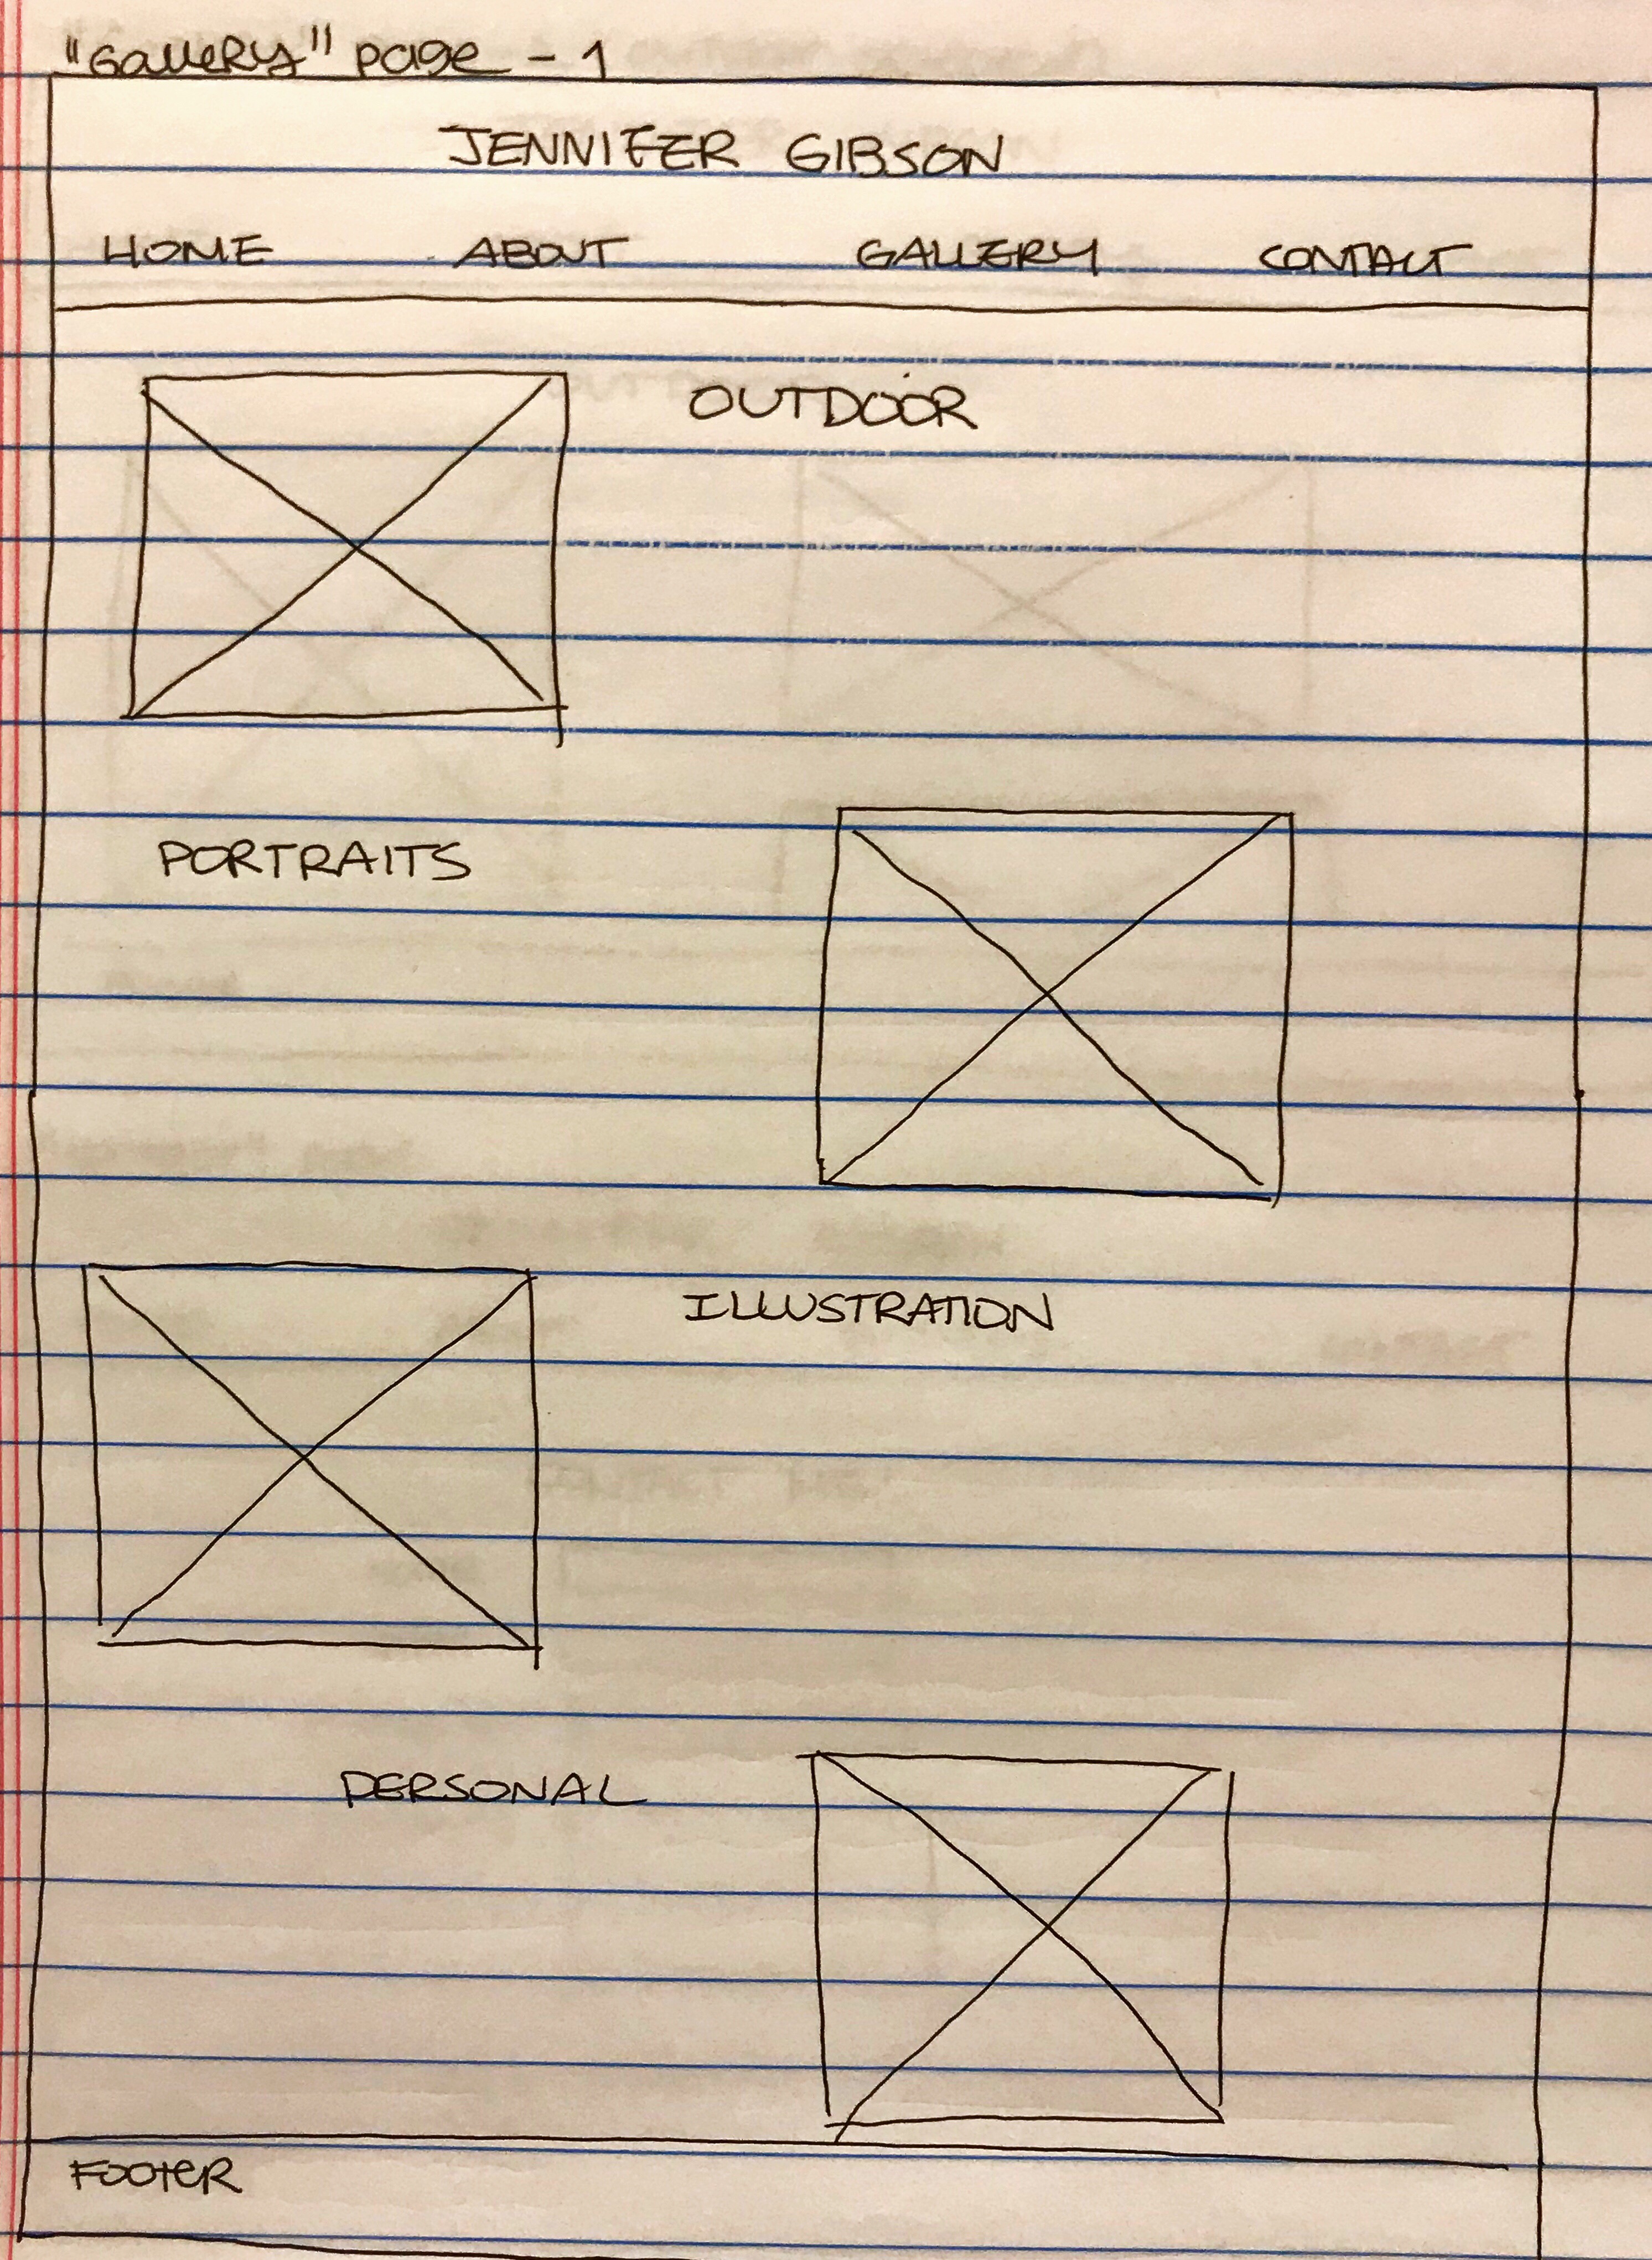 "Gallery" page - 1
JENNIFER GIBSON
HOME ABOUT GALLERY CONTACT
OUTDOOR
PORTRAITS
ILLUSTRATION
PERSONAL
FOOTER